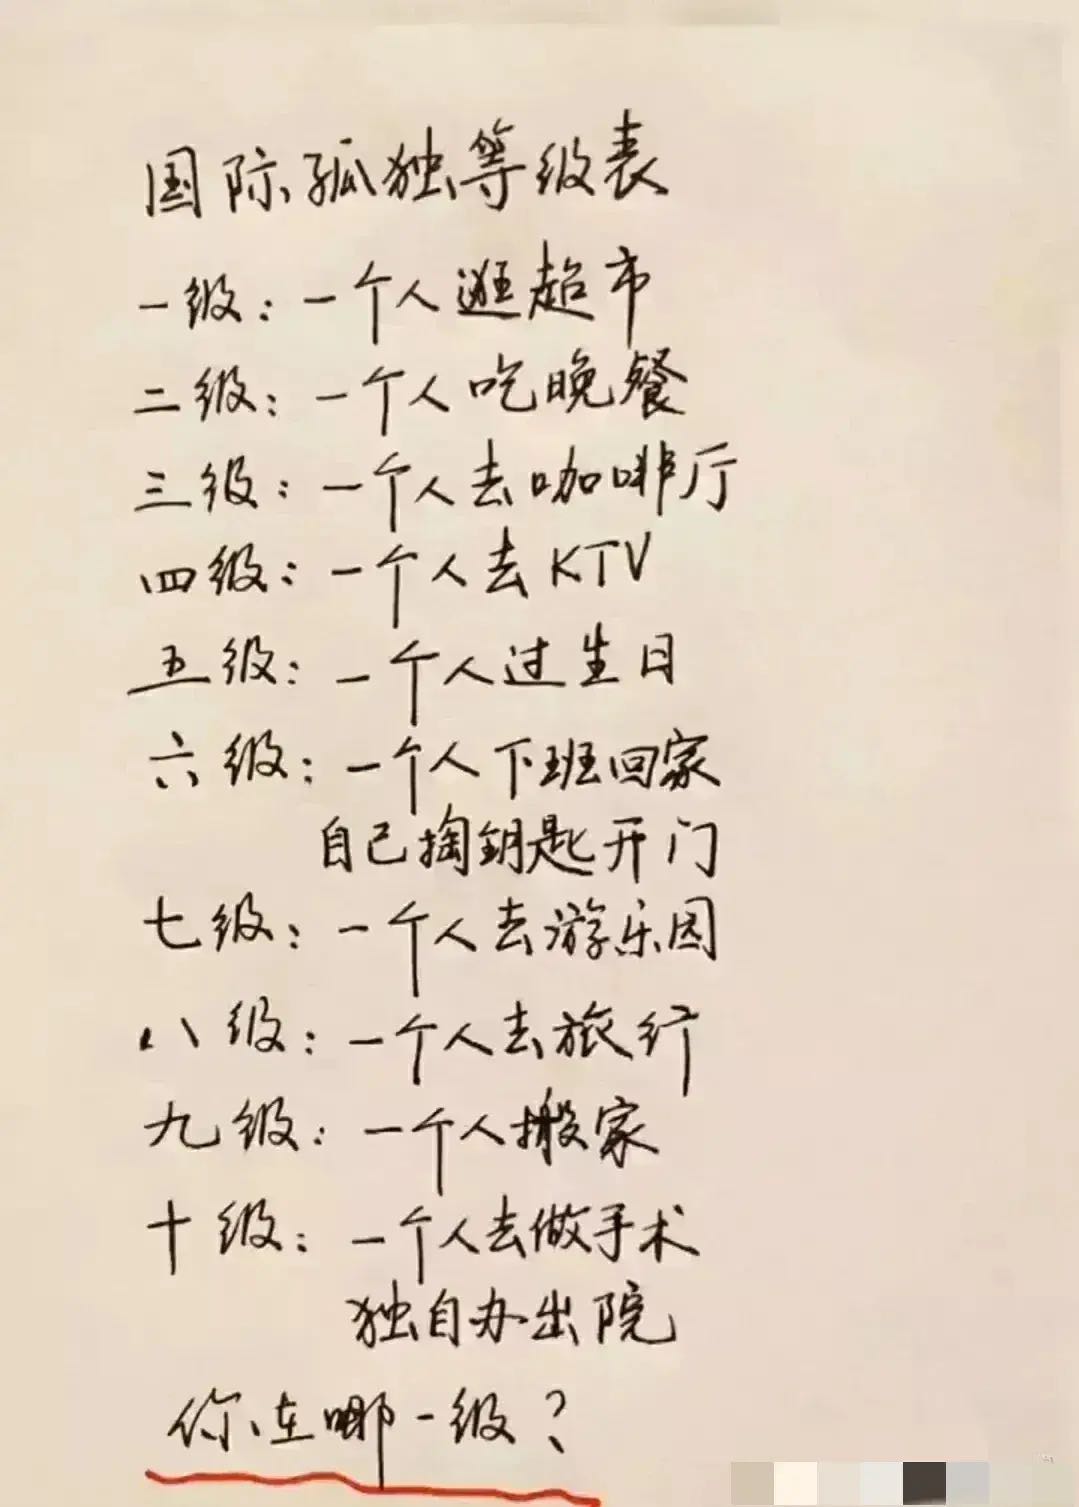 国际孤独等级表
一级：一个人逛超市
二级：一个人吃晚餐
三级：一个人去咖啡厅
四级：一个人去KTV
五级：一个人过生日
六级：一个人下班回家
自己掏钥匙开门
七级：一个人去游乐园
八级：一个人去旅行
九级：一个人搬家
十级：一个人去做手术
独自办出院
你在哪一级？